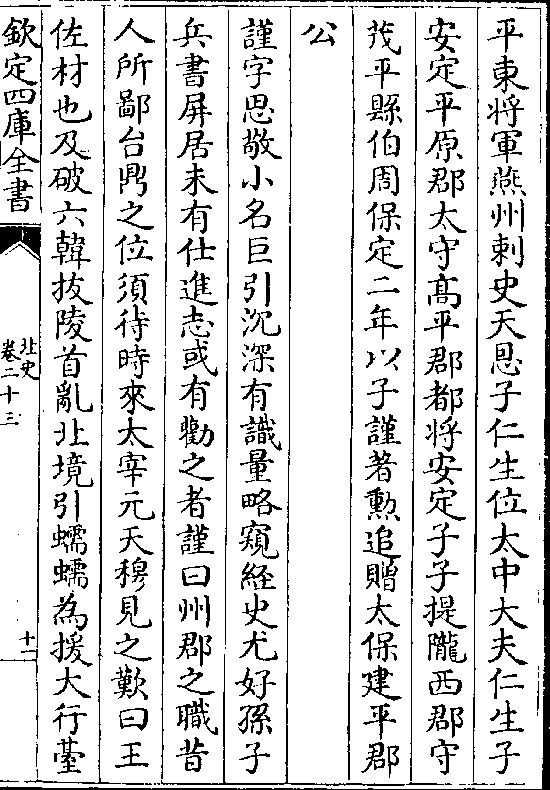 平東將軍燕州刺史天恩子仁生位太中大夫仁生子
安定平原郡太守髙平郡都將安定子子提隴西郡守
茂平縣伯周保定二年以子謹著勲追贈太保建平郡
公
謹字思敬小名巨引沉深有識量略窺經史尤好孫子
兵書屏居未有仕進志或有勸之者謹曰州郡之職昔
人所鄙台鼎之位須待時來太宰元天穆見之歎曰王
佐材也及破六韓拔陵首亂北境引蠕蠕為援大行臺
欽定四庫全書
北史
卷二十三
十二